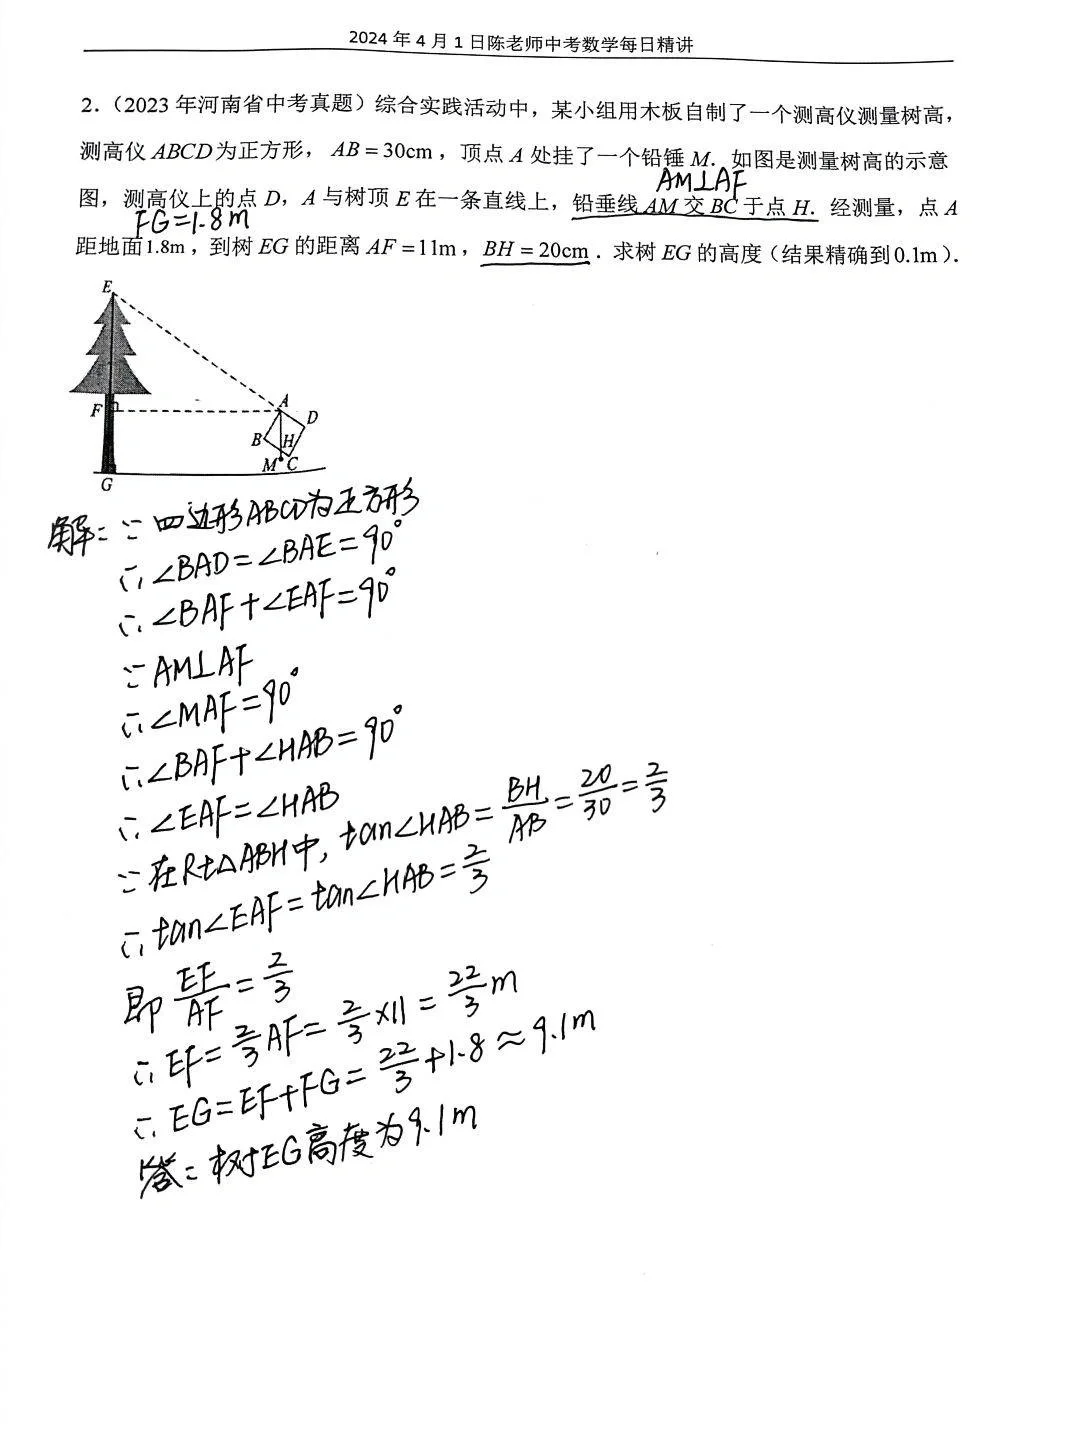 2024 年 4 月 1 日陈老师中考数学每日精讲
2.（2023 年河南省中考真题）综合实践活动中，某小组用木板自制了一个测高仪测量树高，
测高仪 ABCD 为正方形， AB = 30cm ，顶点 A 处挂了一个铅锤 M．如图是测量树高的示意
AM⊥AF
图，测高仪上的点 D，A 与树顶 E 在一条直线上，铅垂线 AM 交 BC 于点 H．经测量，点 A
FG=1.8m
距地面1.8m，到树 EG 的距离 AF =11m，BH = 20cm ．求树 EG 的高度（结果精确到0.1m）．
E
A
F
D
B
H
M
C
G
解：∵四边形ABCD为正方形
∴∠BAD=∠BAE=90°
∴∠BAF+∠EAF=90°
∵AM⊥AF
∴∠MAF=90°
∴∠BAF+∠HAB=90°
∴∠EAF=∠HAB
∵在Rt△ABH中，tan∠HAB=BH/AB=20/30=2/3
∴tan∠EAF=tan∠HAB=2/3
即 EF/AF=2/3
∴EF=2/3AF=2/3×11=22/3m
∴EG=EF+FG=22/3+1.8≈9.1m
答：树EG高度为9.1m